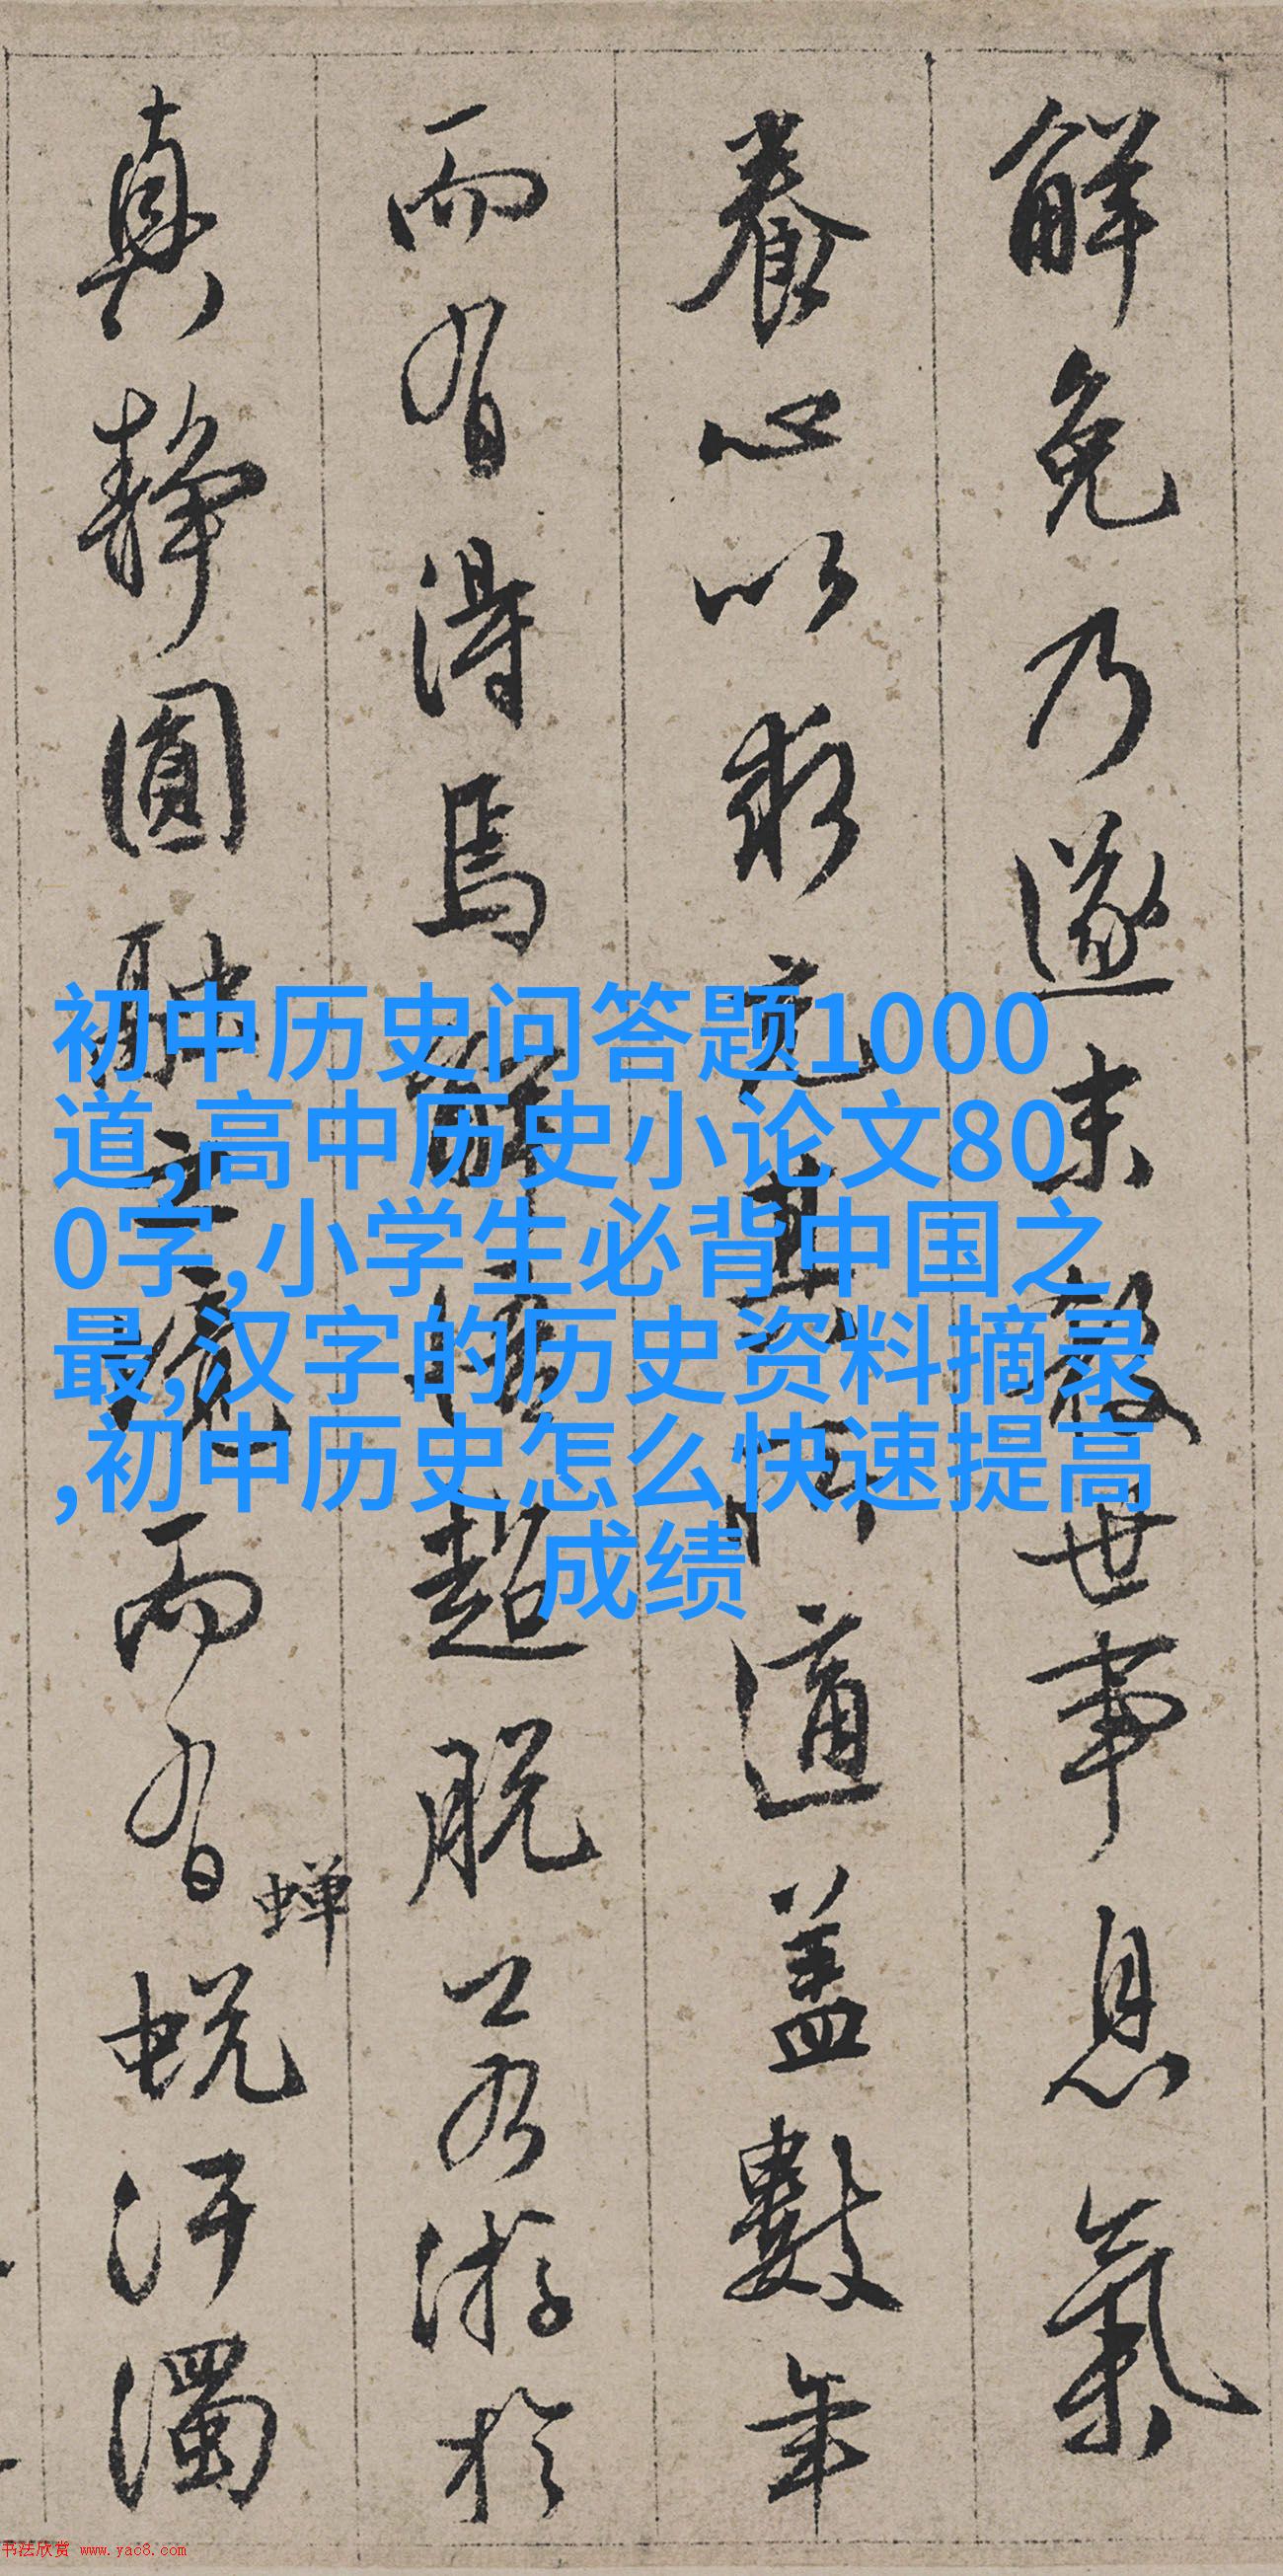 解免乃遂未發世事息氣
養心以求
適蓋數年
而有得焉解悟超脫
若游於
真靜圓融
而有
蟬
蛻汙濁
初中历史问答题1000
道,高中历史小论文80
0字,小学生必背中国之
最,汉字的历史资料摘录
,初中历史怎么快速提高
成绩
书法欣赏 www.yac8.com